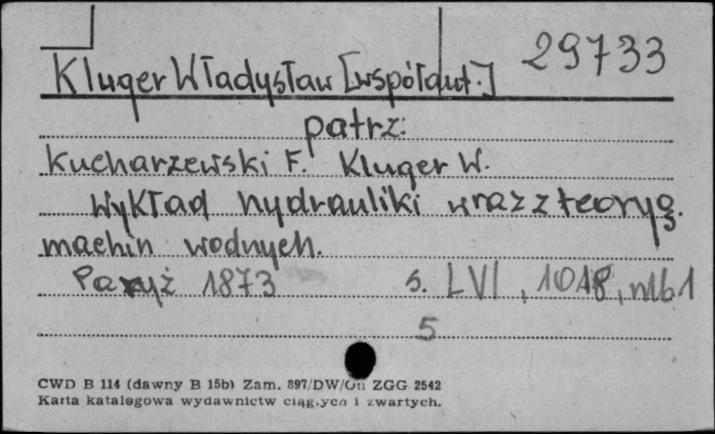 29733
Kluger Władysław [współaut.]
patrz:
Kucharzewski F. Kluger W.
Wykład hydrauliki wraz z teoryą
machin wodnych.
Paryż 1873 s. LVI, 1018, nlb 1
5
CWD B 114 (dawny B 15b) Zam. 897/DW/On ZGG 2542
Karta katalogowa wydawnictw ciągłych i zwartych.